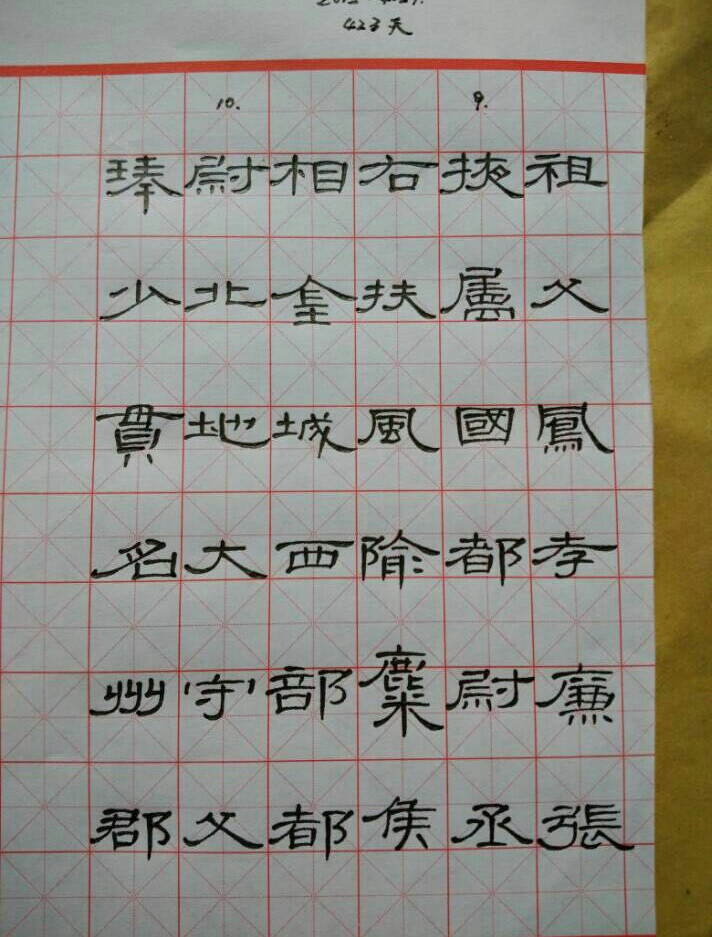 423天
9.
10.
祖父鳳孝廉張
掖屬國都尉丞
右扶風隃麋侯
相金城西部都
尉北地大守父
琫少貫名州郡